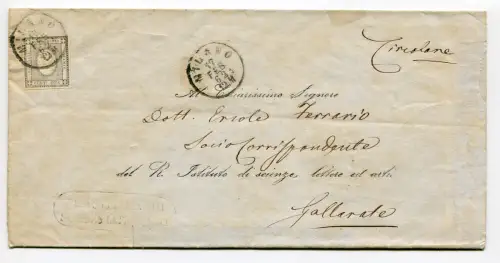 MILANO
MILANO
17
FEB
Circolare
Al Chiarissimo Signore
Dott. Ercole Ferrario
Socio Corrispondente
del R. Istituto di scienze lettere ed arti
Gallarate